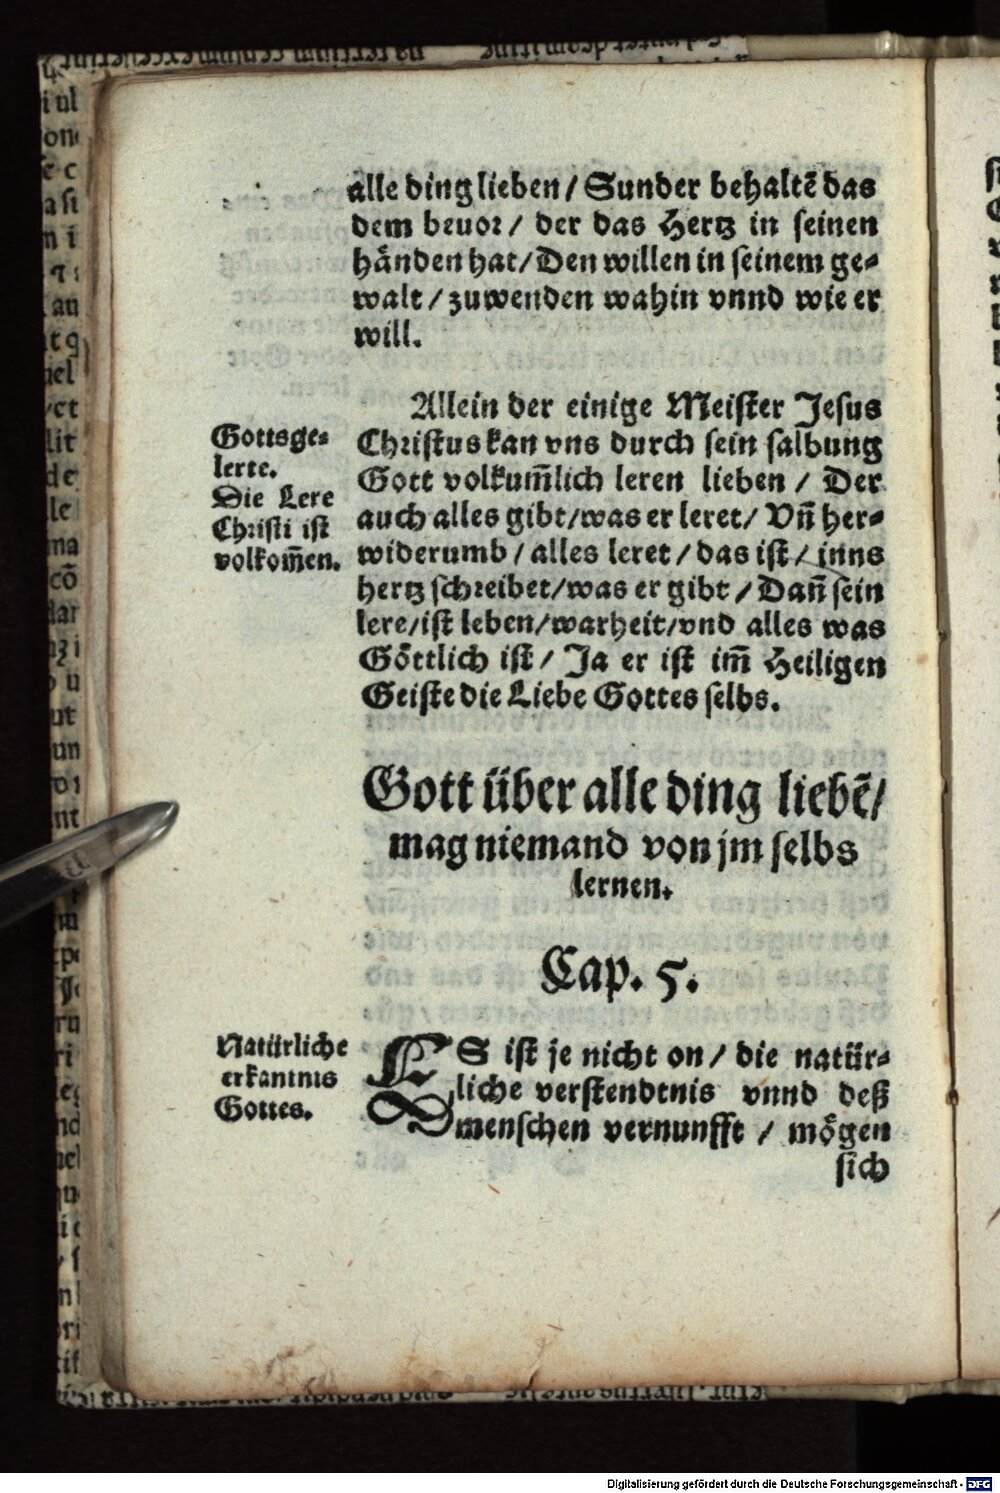 alle ding lieben / Sunder behaltē das
dem beuor / der das Hertz in seinen
händen hat / Den willen in seinem ge-
walt / zuwenden wahin vnnd wie er
will.
Allein der einige Meister Jesus
Christus kan vns durch sein salbung
Gott volkum̃lich leren lieben / Der
auch alles gibt / was er leret / Vn̄ her-
widerumb / alles leret / das ist / inns
hertz schreibet / was er gibt / Dan̄ sein
lere / ist leben / warheit / vnd alles was
Göttlich ist / Ja er ist im̄ Heiligen
Geiste die Liebe Gottes selbs.
Gottsge-
lerte.
Die Lere
Christi ist
volkom̄en.
Gott über alle ding liebē /
mag niemand von jm selbs
lernen.
Cap. 5.
Natürliche
erkantnis
Gottes.
ES ist je nicht on / die natür-
liche verstendtnis vnnd deß
menschen vernunfft / mögen
sich
Digitalisierung gefördert durch die Deutsche Forschungsgemeinschaft - DFG